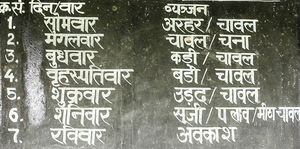 क्र.सं. दिन/वार व्यंजन
1. सोमवार अरहर/चावल
2. मंगलवार चावल/चना
3. बुधवार कढ़ी/चावल
4. वृहस्पतिवार बड़ी/चावल
5. शुक्रवार उड़द/चावल
6. शनिवार सब्जी/पुलाव/मीठा चावल
7. रविवार अवकाश